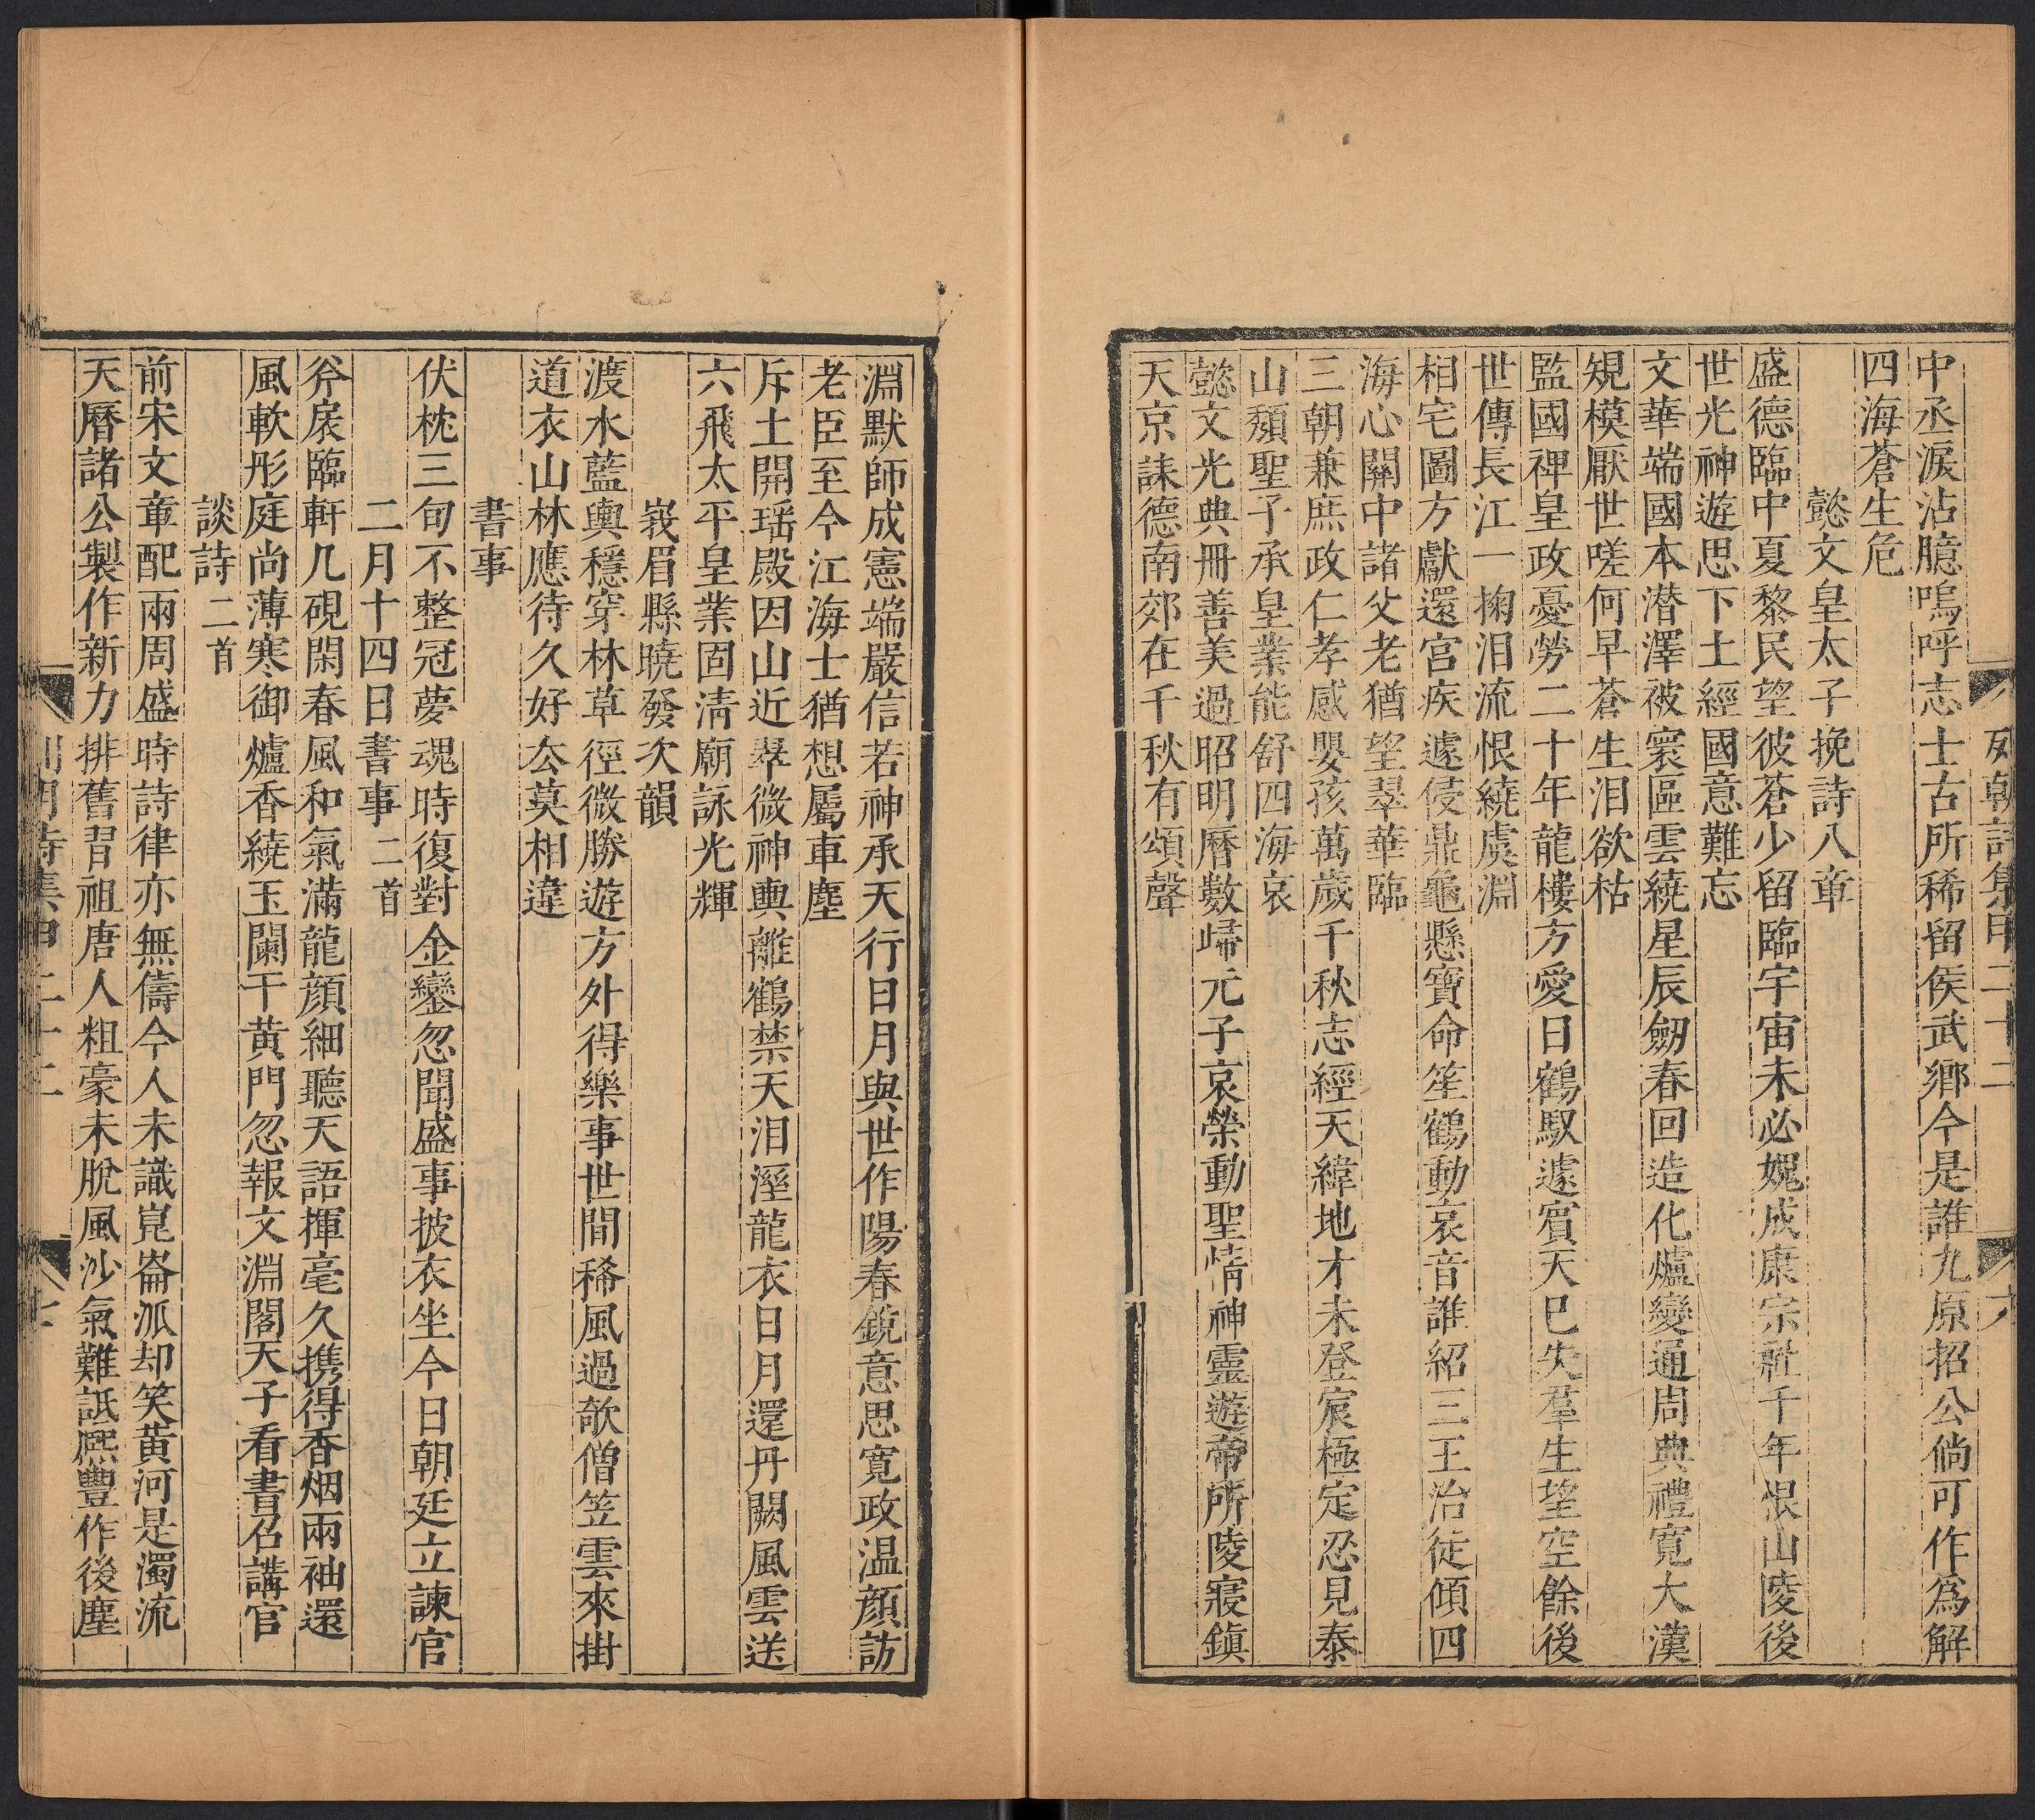 列朝詩集甲二十二
中丞淚沾臆嗚呼志士古所稀留侯武鄉今是誰九原招公倘可作爲解
四海蒼生危
懿文皇太子挽詩八章
盛德臨中夏黎民望彼蒼少留臨宇宙未必媿成康宗社千年恨山陵後
世光神遊思下土經國意難忘
文華端國本潛澤被寰區雲繞星辰劒春回造化爐變通周典禮寬大漢
規模厭世嗟何早蒼生泪欲枯
監國裨皇政憂勞二十年龍樓方愛日鶴馭遽賓天巳失羣生望空餘後
世傳長江一掬泪流恨繞虞淵
相宅圖方獻還宮疾遽侵鼎龜懸寶命笙鶴動哀音誰紹三王治徒傾四
海心關中諸父老猶望翠華臨
三朝兼庶政仁孝感嬰孩萬歲千秋志經天緯地才未登宸極定忍見泰
山頹聖子承皇業能舒四海哀
懿文光典冊善美過昭明曆數歸元子哀榮動聖情神靈遊帝所陵寢鎮
天京誄德南郊在千秋有頌聲
淵默師成憲端嚴信若神承天行日月與世作陽春銳意思寬政温顔訪
老臣至今江海士猶想屬車塵
斥土開瑶殿因山近翠微神輿離鶴禁天泪溼龍衣日月還丹闕風雲送
六飛太平皇業固淸廟詠光輝
峩眉縣曉發次韻
渡水藍輿穩穿林草徑微勝遊方外得樂事世間稀風過欹僧笠雲來掛
道衣山林應待久好去莫相違
書事
伏枕三旬不整冠夢魂時復對金鑾忽聞盛事披衣坐今日朝廷立諫官
二月十四日書事二首
斧扆臨軒几硯閑春風和氣滿龍顔細聽天語揮毫久携得香烟兩袖還
風軟彤庭尚薄寒御爐香繞玉闌干黃門忽報文淵閣天子看書召講官
談詩二首
前宋文章配兩周盛時詩律亦無儔今人未識崑崙泒却笑黃河是濁流
天曆諸公製作新力排舊習祖唐人粗豪未脫風沙氣難詆熙豐作後塵